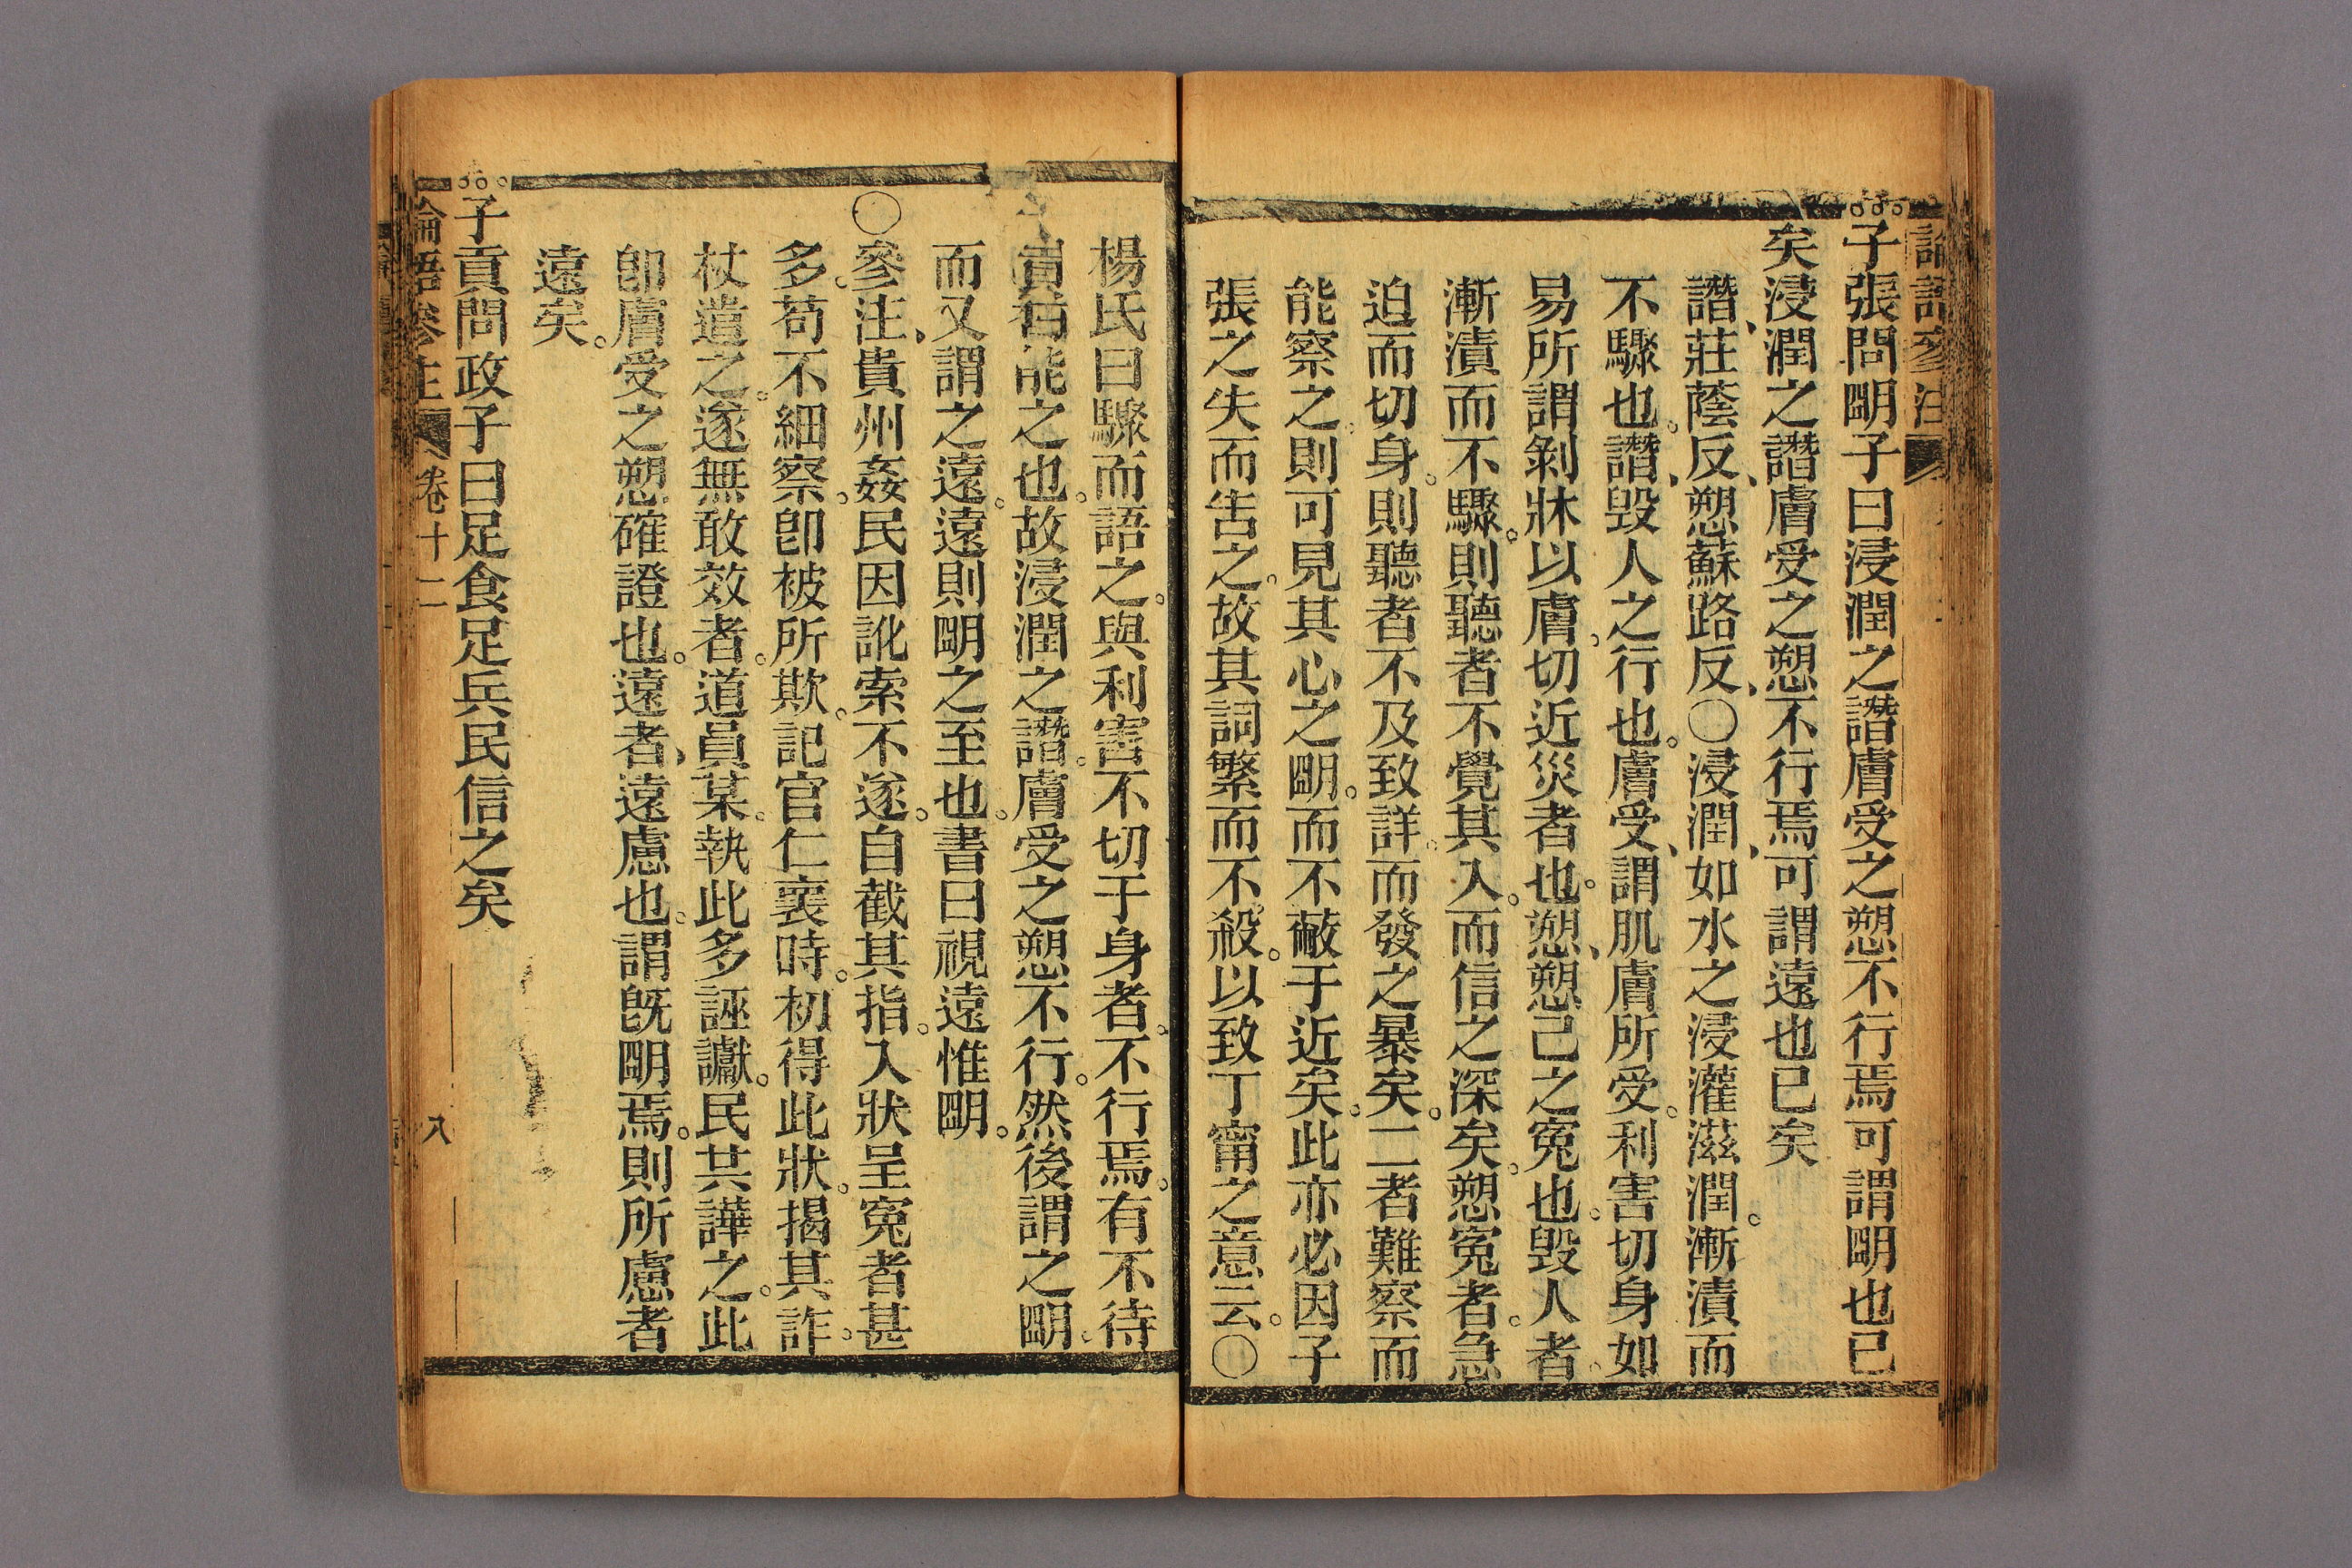 子張問朙子曰浸潤之譖膚受之愬不行焉可謂朙也已
矣浸潤之譖膚受之愬不行焉可謂遠也已矣
譖、莊蔭反、愬蘇路反、〇浸潤、如水之浸灌滋潤。漸漬而
不驟也。譖、毀人之行也。膚受、謂肌膚所受。利害切身如
易所謂剝牀以膚、切近災者也。愬、愬己之冤也。毀人者。
漸漬而不驟。則聽者不覺其入。而信之深矣。愬冤者。急
迫而切身。則聽者不及致詳。而發之暴矣。二者難察而
能察之。則可見其心之朙。而不蔽于近矣。此亦必因子
張之失而告之。故其詞繁而不殺。以致丁甯之意云。〇
楊氏曰驟而語之。與利害不切于身者。不行焉。有不待
能之也。故浸潤之譖。膚受之愬不行。然後謂之朙。
而又謂之遠。遠則朙之至也。書曰視遠惟朙。
〇參注、貴州姦民因訛索不遂。自截其指。入狀呈冤者甚
多。苟不細察。卽被所欺。記官仁襄時。初得此狀。揭其詐。
杖遣之。遂無敢效者。道員某。執此多誣讞。民共譁之。此
卽膚受之愬確證也。遠者、遠慮也。謂旣朙焉。則所慮者
遠矣。
子貢問政子曰足食足兵民信之矣
論語參注
卷十二
八